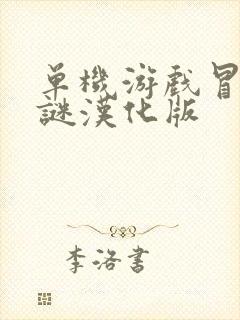 單機游戲冒
謎漢化版
李洛書